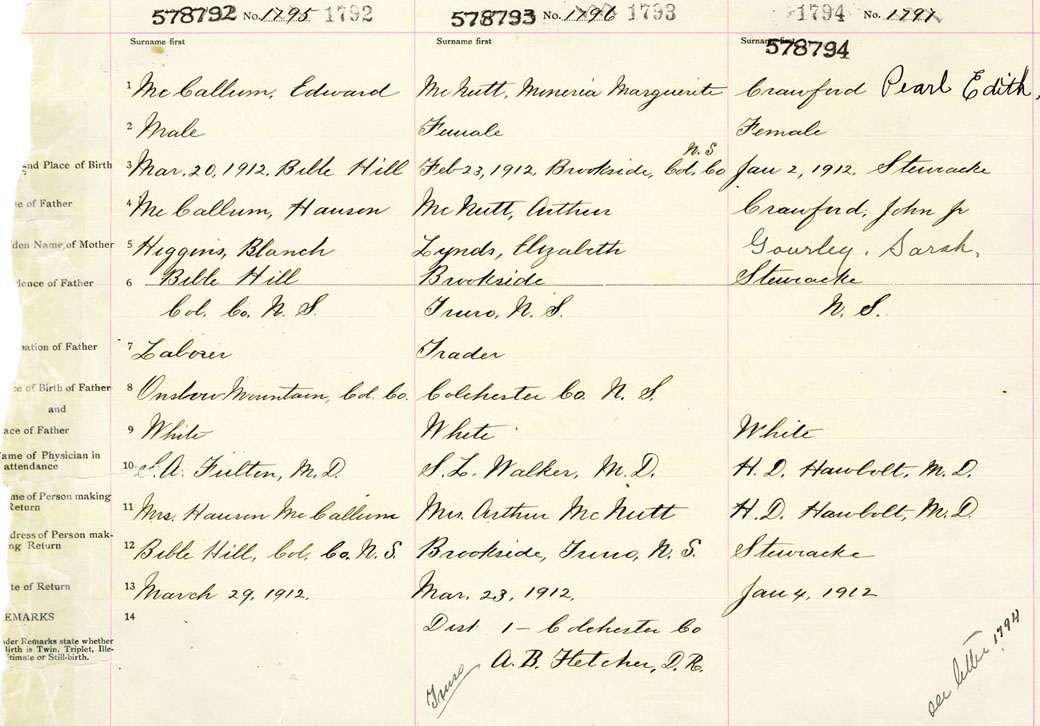 578792 No. 1795 1792 578793 No. 1796 1793 1794 No. 1797
Surname first Surname first Surname first
578794
1 McCallum, Edward McNutt, Mineria Marguerite Crawford Pearl Edith,
2 Male Female Female
N. S
nd Place of Birth 3 Mar. 20, 1912, Bible Hill Feb 23, 1912, Brookside, Col. Co Jan 2, 1912, Stewiacke
e of Father 4 McCallum, Hanson McNutt, Arthur Crawford, John Jr
den Name of Mother 5 Higgins, Blanch Lynds, Elizabeth Gourley, Sarah,
dence of Father 6 Bible Hill Brookside Stewiacke
Col. Co. N. S. Truro, N. S. N. S.
pation of Father 7 Laborer Trader
ce of Birth of Father 8 Onslow Mountain, Col. Co. Colchester Co. N. S.
and
ace of Father 9 White White White
ame of Physician in
attendance 10 S. A. Fulton, M. D. S. L. Walker, M. D. H. D. Hawbolt, M. D.
me of Person making
Return 11 Mrs. Hanson McCallum Mrs. Arthur McNutt H. D. Hawbolt, M. D.
dress of Person mak-
ng Return 12 Bible Hill, Col. Co. N. S. Brookside, Truro, N. S. Stewiacke
te of Return 13 March 29, 1912. Mar. 23, 1912, Jan 4, 1912
EMARKS 14 Dist 1 - Colchester Co
der Remarks state whether
Birth is Twin, Triplet, Ille-
itimate or Still-birth.
A. B. Fletcher, D. R.
Truro
see letter 1794